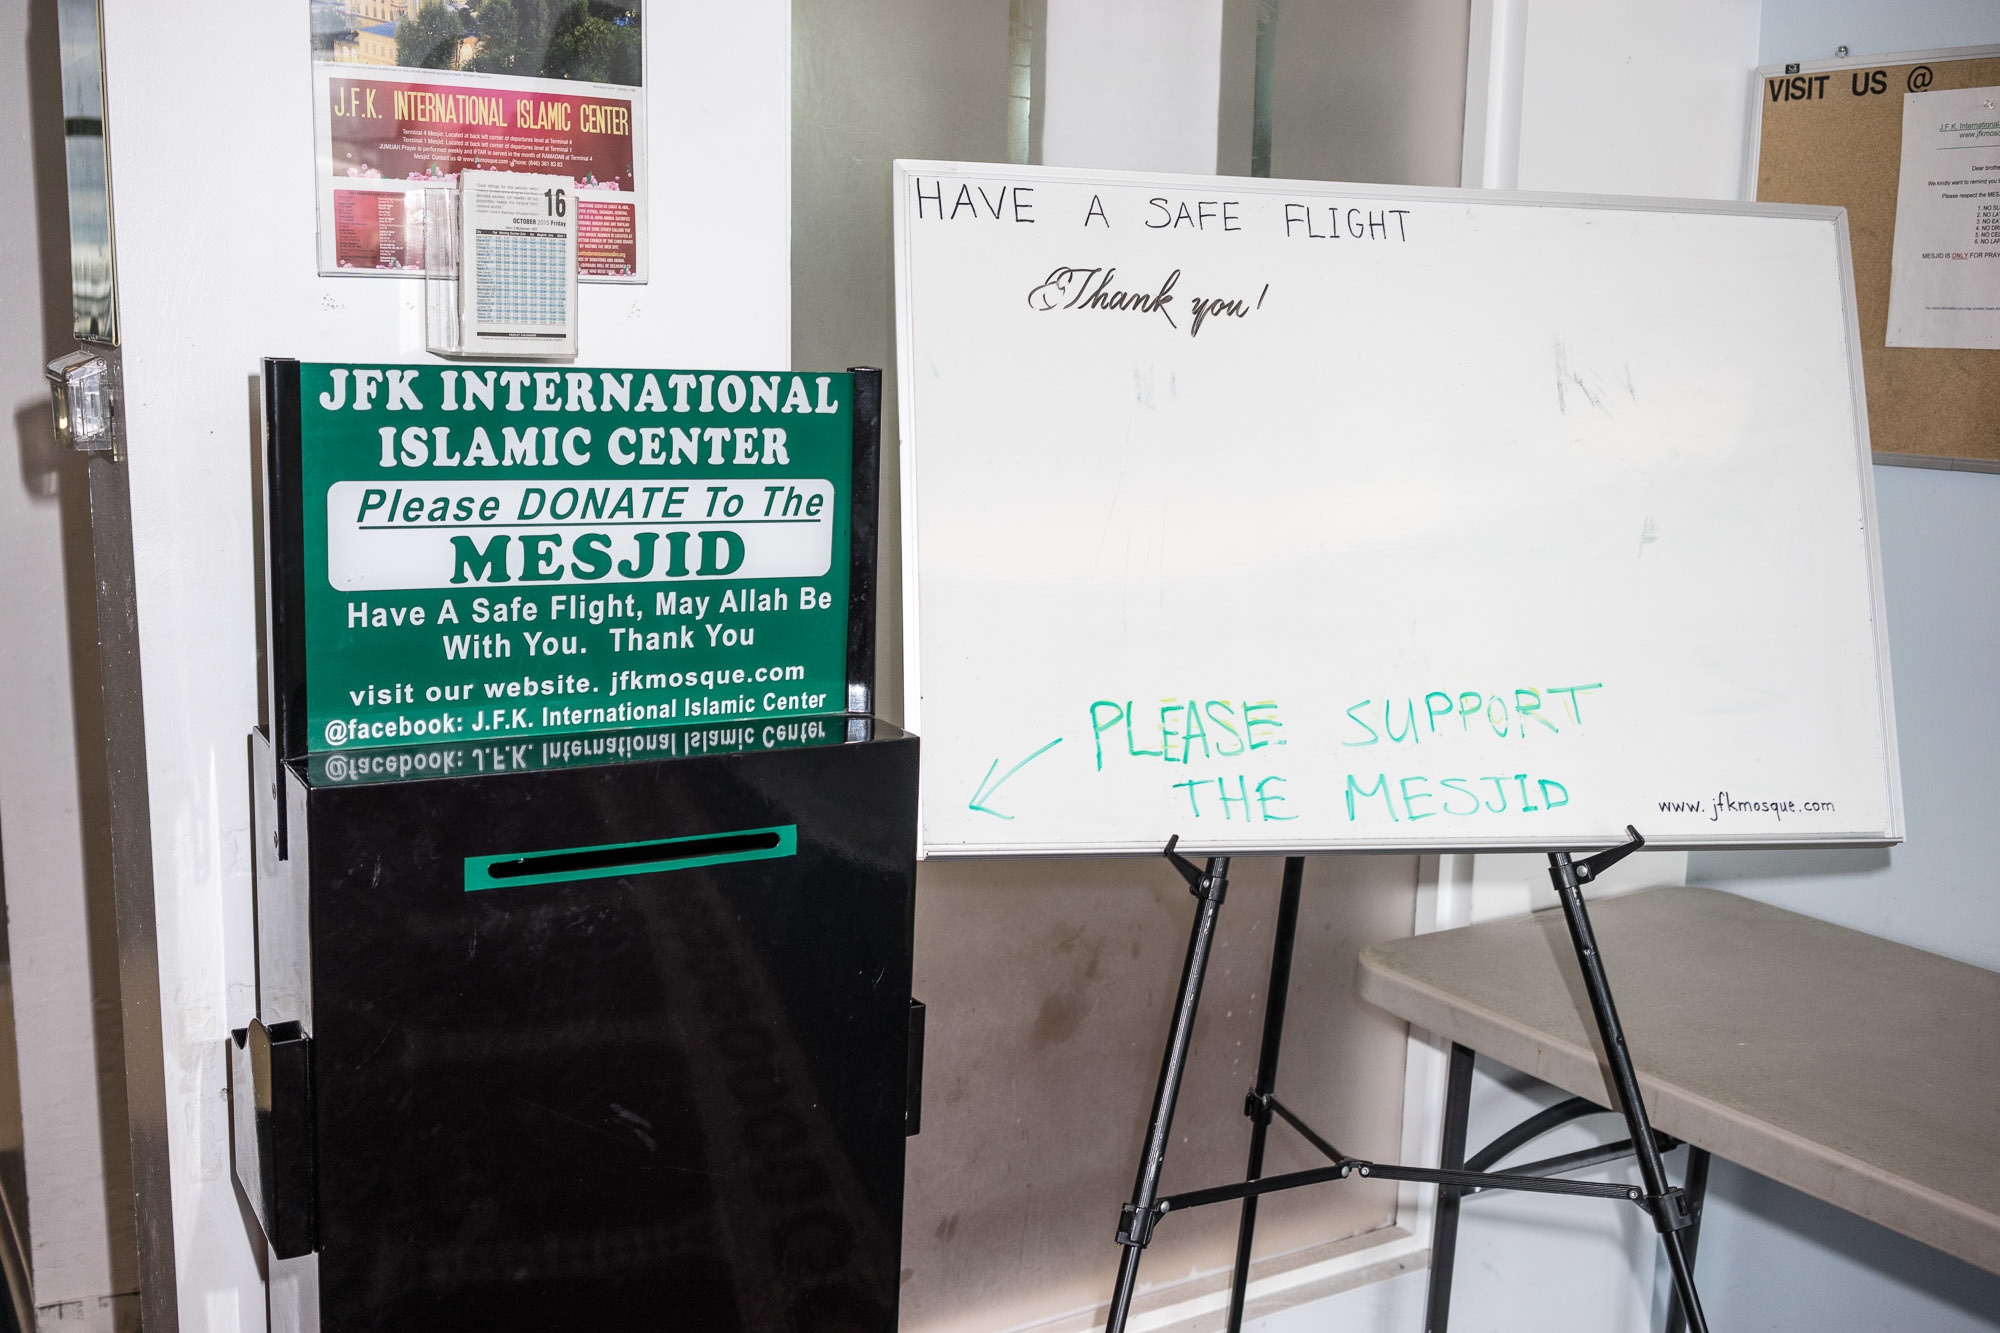 J.F.K. INTERNATIONAL ISLAMIC CENTER
Terminal 4 Mesjid: Located at back left corner of departures level at Terminal 4
Terminal 1 Mesjid: Located at back left corner of departures level at Terminal 1
JUMUAH Prayer is performed weekly and IFTAR is served in the month of RAMADAN at Terminal 4
Mesjid. Contact us @ www.jfkmosque.com Phone: (646) 361 83 83
16
OCTOBER 2015 Friday
JFK INTERNATIONAL
ISLAMIC CENTER
Please DONATE To The
MESJID
Have A Safe Flight, May Allah Be
With You. Thank You
visit our website. jfkmosque.com
@facebook: J.F.K. International Islamic Center
HAVE A SAFE FLIGHT
Thank you!
PLEASE SUPPORT
THE MESJID
www.jfkmosque.com
VISIT US @
J.F.K. International
www.jfkmos
Dear brothe
We kindly want to remind you
Please respect the MES
1. NO SL
2. NO LA
3. NO EA
4. NO DR
5. NO CE
6. NO LAP
MESJID IS ONLY FOR PRAY